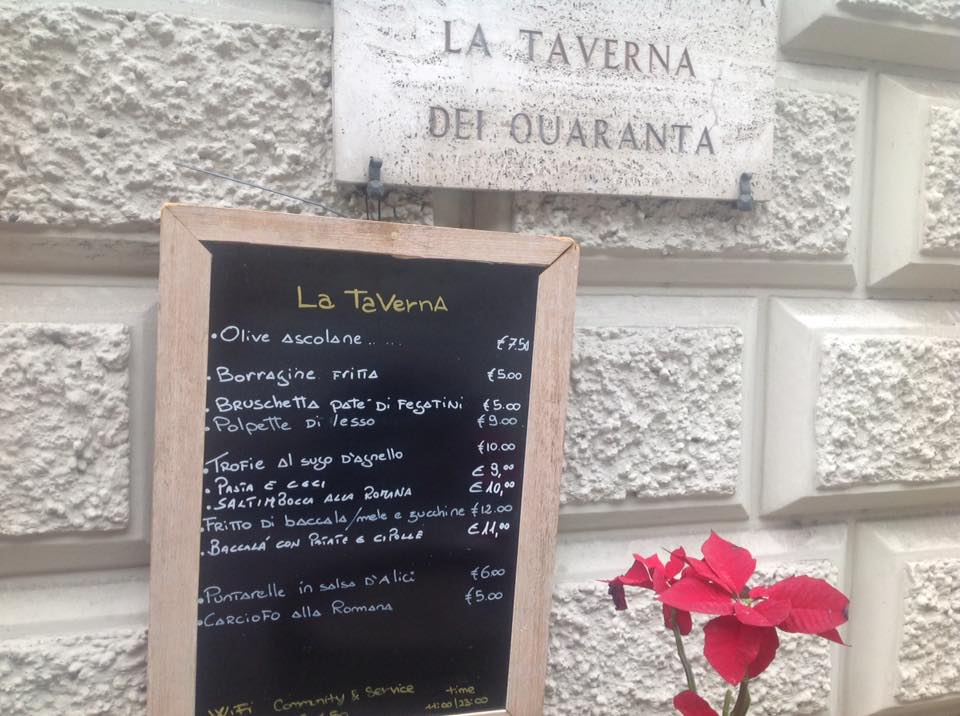 LA TAVERNA
DEI QUARANTA
La TaVernA
• Olive ascolane ....... €7.50
• Borragine fritta €5.00
• Bruschetta paté di fegatini €5.00
• Polpette di lesso €9.00
• Trofie al sugo d'agnello €10.00
• Pasta e ceci €9,00
• Saltimbocca alla romana €10,00
• Fritto di baccala/mele e zucchine €12.00
• Baccalà con patate e cipolle €11,00
• Puntarelle in salsa d'Alici €6.00
• Carciofo alla Romana €5.00
WiFi Community & Service time
11:00/23:00